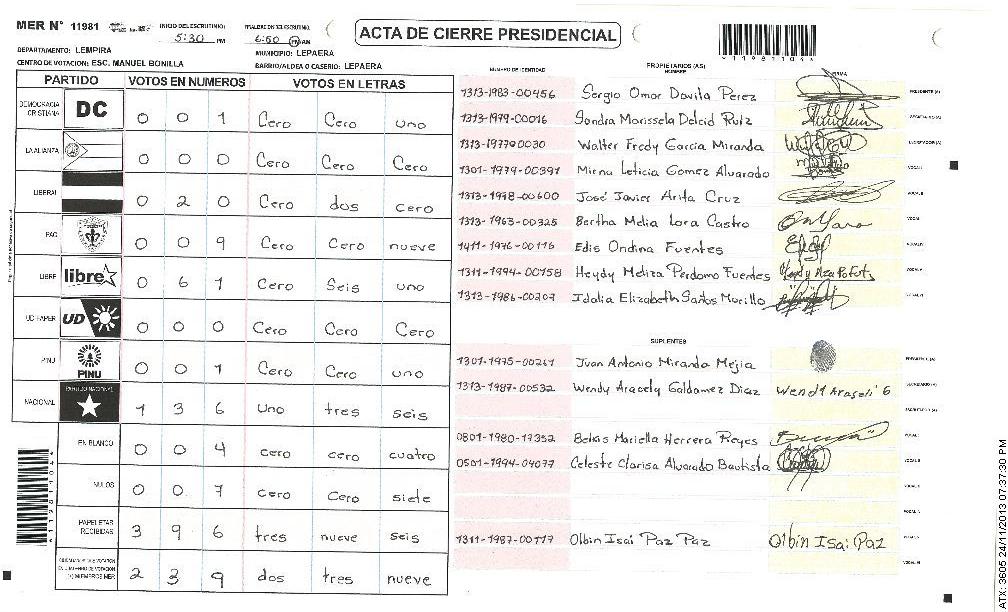 MER N° 11981
INICIO DEL ESCRUTINIO
5:30 PM
FINALIZACION DEL ESCRUTINIO
6:50 PM AM
ACTA DE CIERRE PRESIDENCIAL
DEPARTAMENTO: LEMPIRA
MUNICIPIO: LEPAERA
CENTRO DE VOTACION: ESC. MANUEL BONILLA
BARRIO/ALDEA O CASERIO: LEPAERA
PARTIDO VOTOS EN NUMEROS VOTOS EN LETRAS
DEMOCRACIA CRISTIANA DC 0 0 1 Cero Cero uno
LA ALIANZA 0 0 0 Cero Cero Cero
LIBERAL 0 2 0 Cero dos cero
PAC 0 0 9 Cero Cero nueve
LIBRE libre 0 6 1 Cero Seis uno
UD FAPER UD 0 0 0 Cero Cero Cero
PINU PINU 0 0 1 Cero Cero uno
NACIONAL PARTIDO NACIONAL 1 3 6 Uno tres seis
EN BLANCO 0 0 4 cero cero cuatro
NULOS 0 0 7 cero Cero siete
PAPELETAS RECIBIDAS 3 9 6 tres nueve seis
2 3 9 dos tres nueve
NUMERO DE IDENTIDAD PROPIETARIOS (AS) NOMBRE FIRMA
1313-1983-00456 Sergio Omar Davila Perez PRESIDENTE (A)
1313-1979-00016 Sandra Marissela Delcid Ruiz SECRETARIO (A)
1313-19770030 Walter Fredy Garcia Miranda ESCRUTADOR (A)
1301-1979-00391 Mirna Leticia Gomez Alvarado VOCAL I
1313-1998-00600 José Javier Arita Cruz VOCAL II
1313-1963-00325 Bertha Melia Lara Castro
1411-1976-00116 Edis Ondina Fuentes
1311-1994-00158 Heydy Meliza Perdomo Fuentes
1313-1986-00207 Idalia Elizabeth Santos Murillo
SUPLENTES
1301-1975-00261 Juan Antonio Miranda Mejia PRESIDENTE (A)
1313-1987-00532 Wendy Aracely Galdamez Diaz Wendy Araseli G SECRETARIO (A)
0801-1980-17352 Belkis Mariella Herrera Reyes
0501-1994-04077 Celeste Clarisa Alvarado Bautista
1311-1987-00177 Olbin Isai Paz Paz Olbin Isai Paz
ATX: 3605 24/11/2013 07:37:30 PM